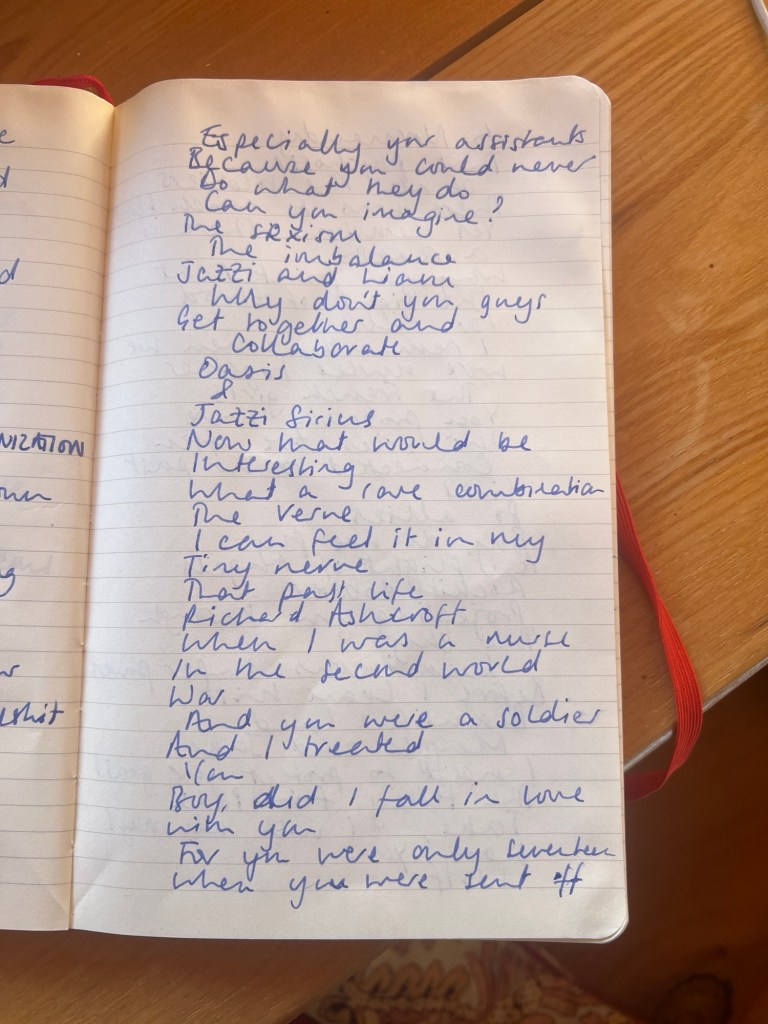 Especially your assistants
Because you could never
Do what they do
Can you imagine?
The sexism
The imbalance
Jazzi and Liam
Why don't you guys
Get together and
Collaborate
Oasis
&
Jazzi Sirius
Now that would be
Interesting
What a rare combination
The Verve
I can feel it in my
Tiny nerve
That past life
Richard Ashcroft
When I was a nurse
In the second world
War
And you were a soldier
And I treated
You
Boy, did I fall in love
with you
For you were only seventeen
When you were sent off